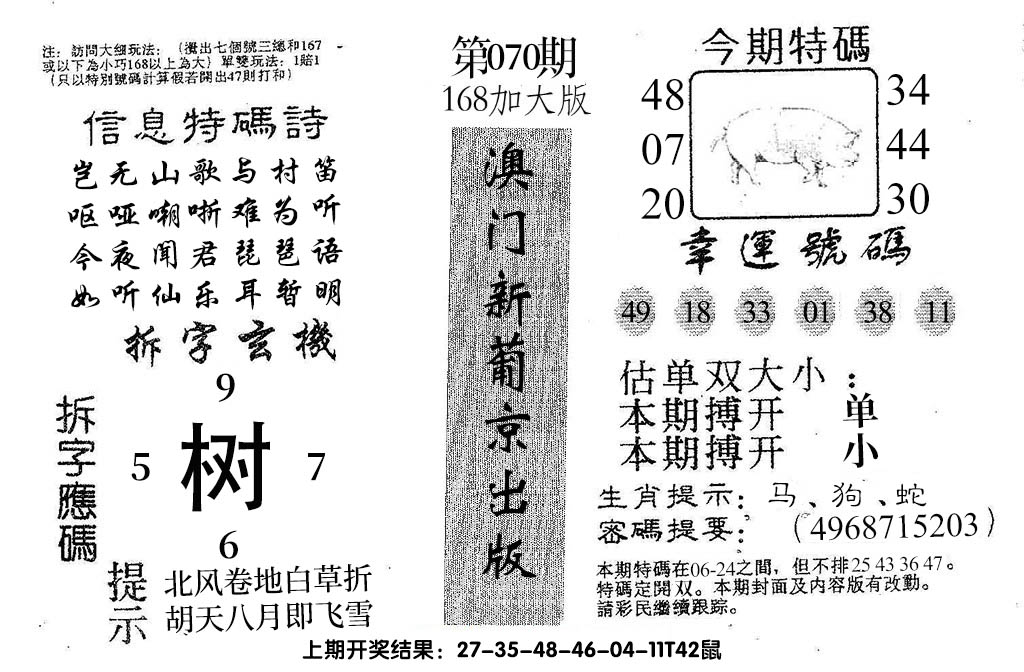 注：訪問大细玩法：（攪出七個號三總和167
或以下為小巧168以上為大）單雙玩法：1賠1
（只以特別號碼計算假若開出47則打和）
信息特碼詩
岂无山歌与村笛
呕哑嘲哳难为听
今夜闻君琵琶语
如听仙乐耳暂明
拆字玄機
拆字應碼
9
5
树
7
6
提示
北风卷地白草折
胡天八月即飞雪
第070期
168加大版
澳门新葡京出版
今期特碼
48
34
07
44
20
30
幸運號碼
49 18 33 01 38 11
估单双大小：
本期搏开 单
本期搏开 小
生肖提示：马、狗、蛇
密碼提要：（4968715203）
本期特碼在06-24之間，但不排25 43 36 47。
特碼定開双。本期封面及内容版有改動。
請彩民繼續跟踪。
上期开奖结果：27-35-48-46-04-11T42鼠